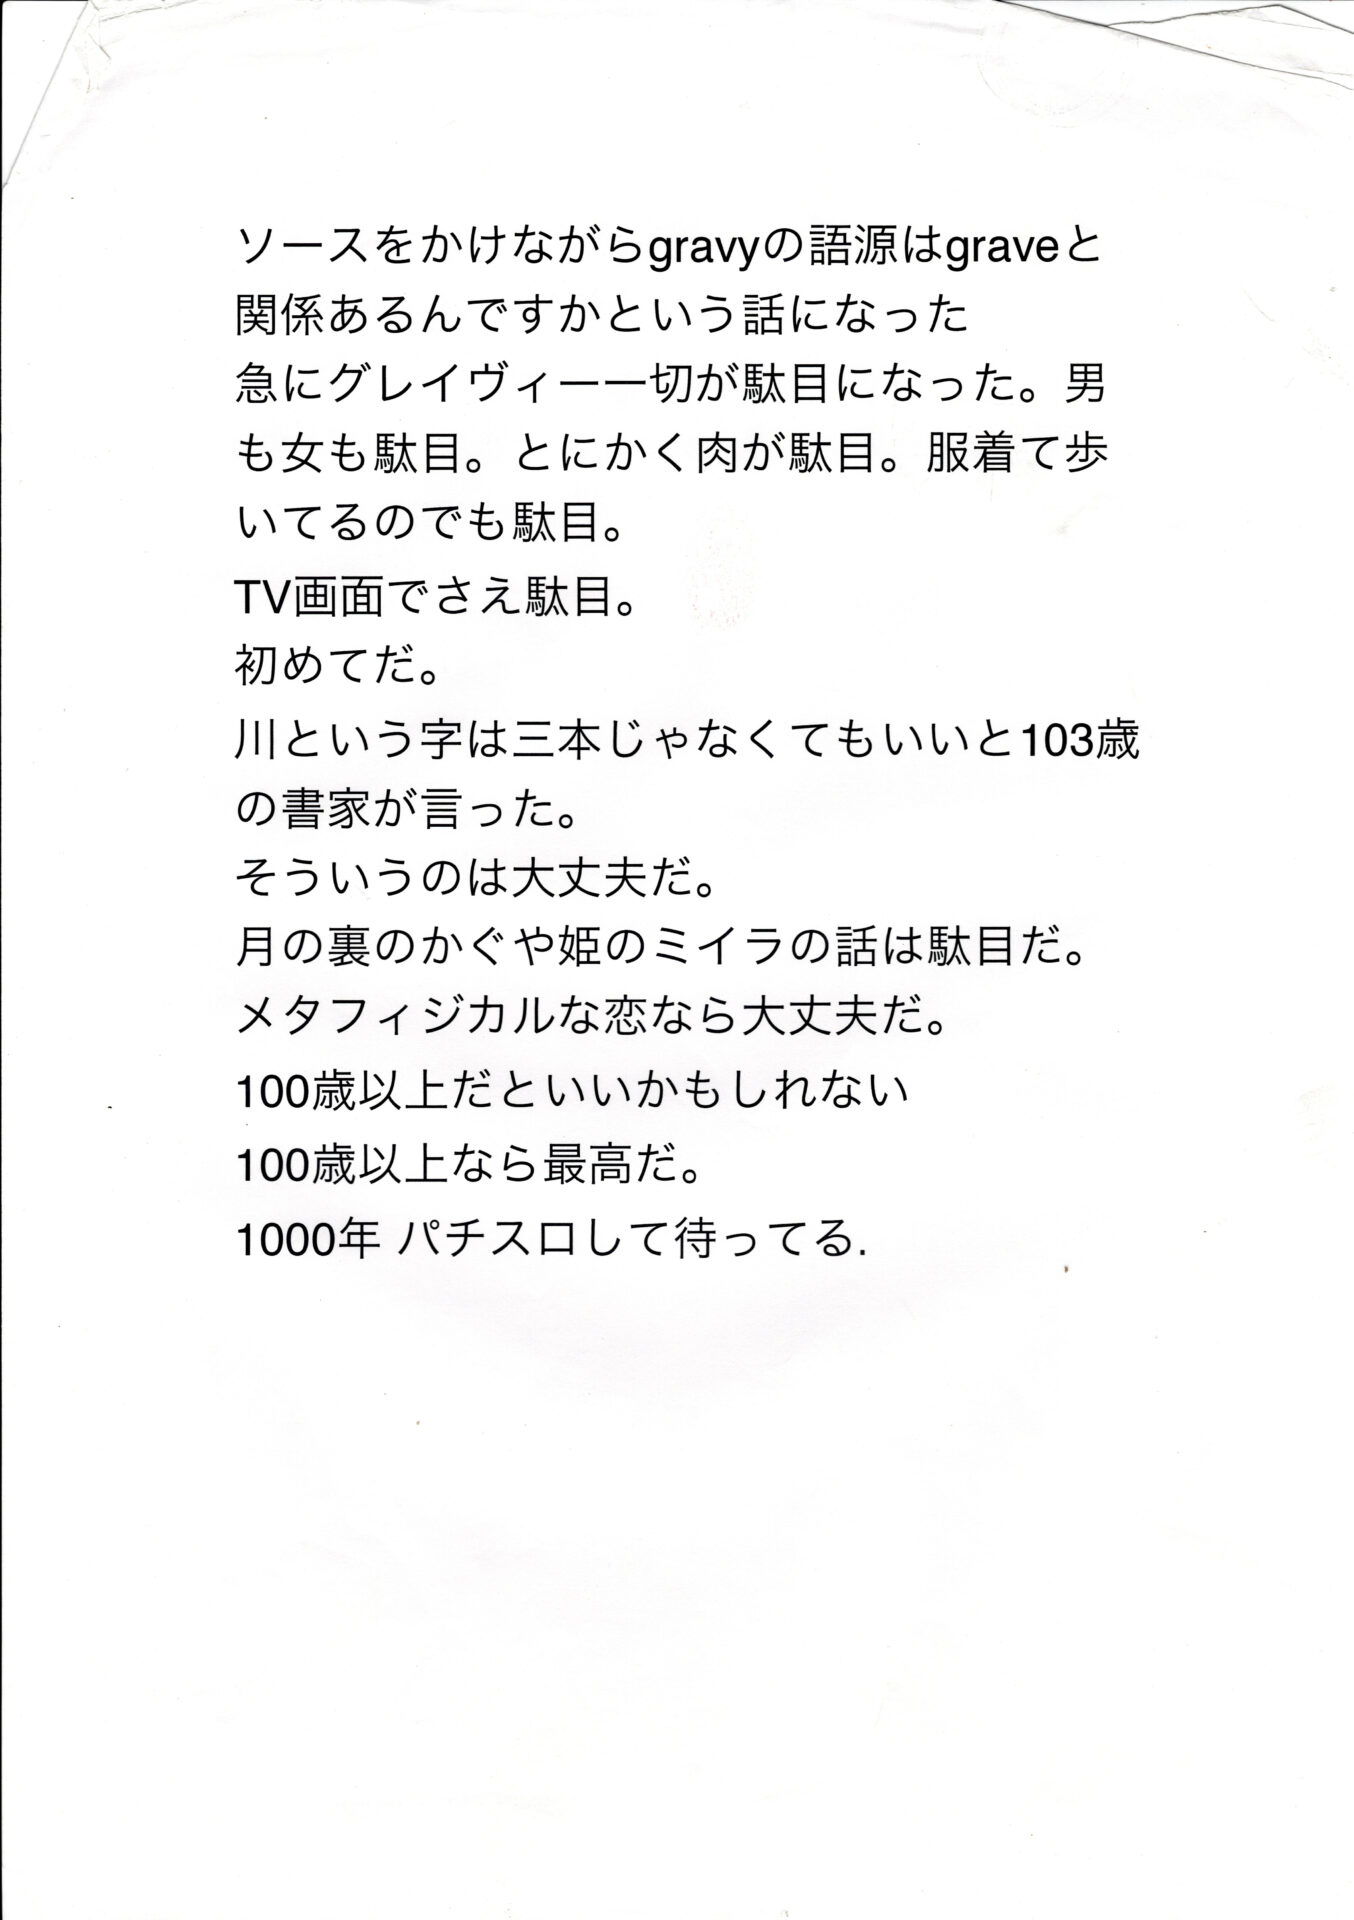 ソースをかけながらgravyの語源はgraveと
関係あるんですかという話になった
急にグレイヴィー一切が駄目になった。男
も女も駄目。とにかく肉が駄目。服着て歩
いてるのでも駄目。
TV画面でさえ駄目。
初めてだ。
川という字は三本じゃなくてもいいと103歳
の書家が言った。
そういうのは大丈夫だ。
月の裏のかぐや姫のミイラの話は駄目だ。
メタフィジカルな恋なら大丈夫だ。
100歳以上だといいかもしれない
100歳以上なら最高だ。
1000年 パチスロして待ってる.